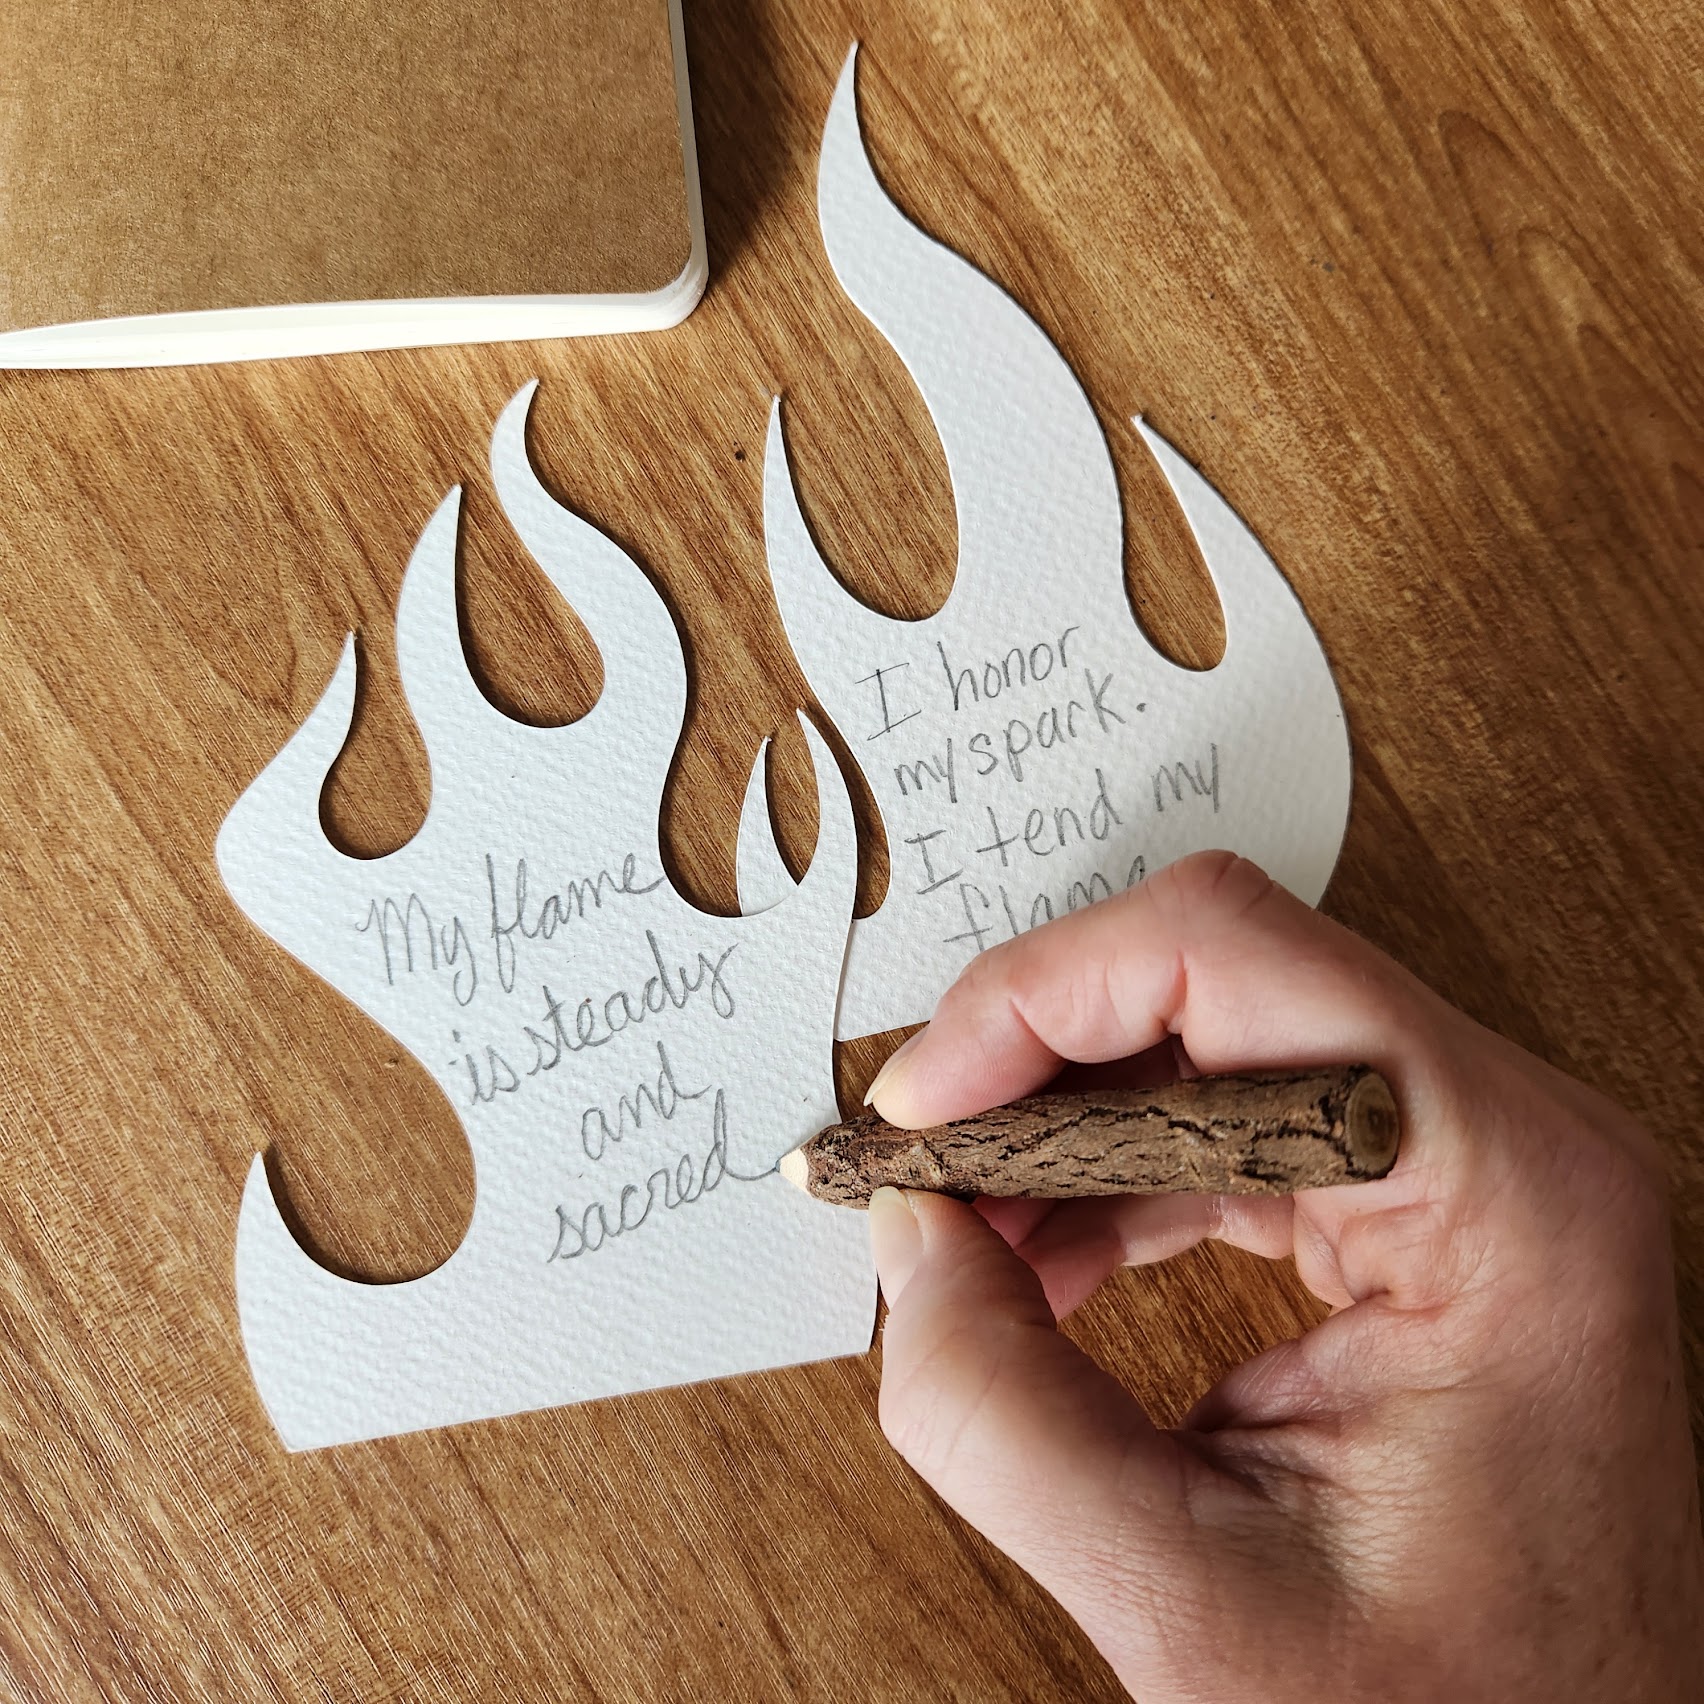 My flame
is steady
and
sacred
I honor
my spark.
I tend my
flame